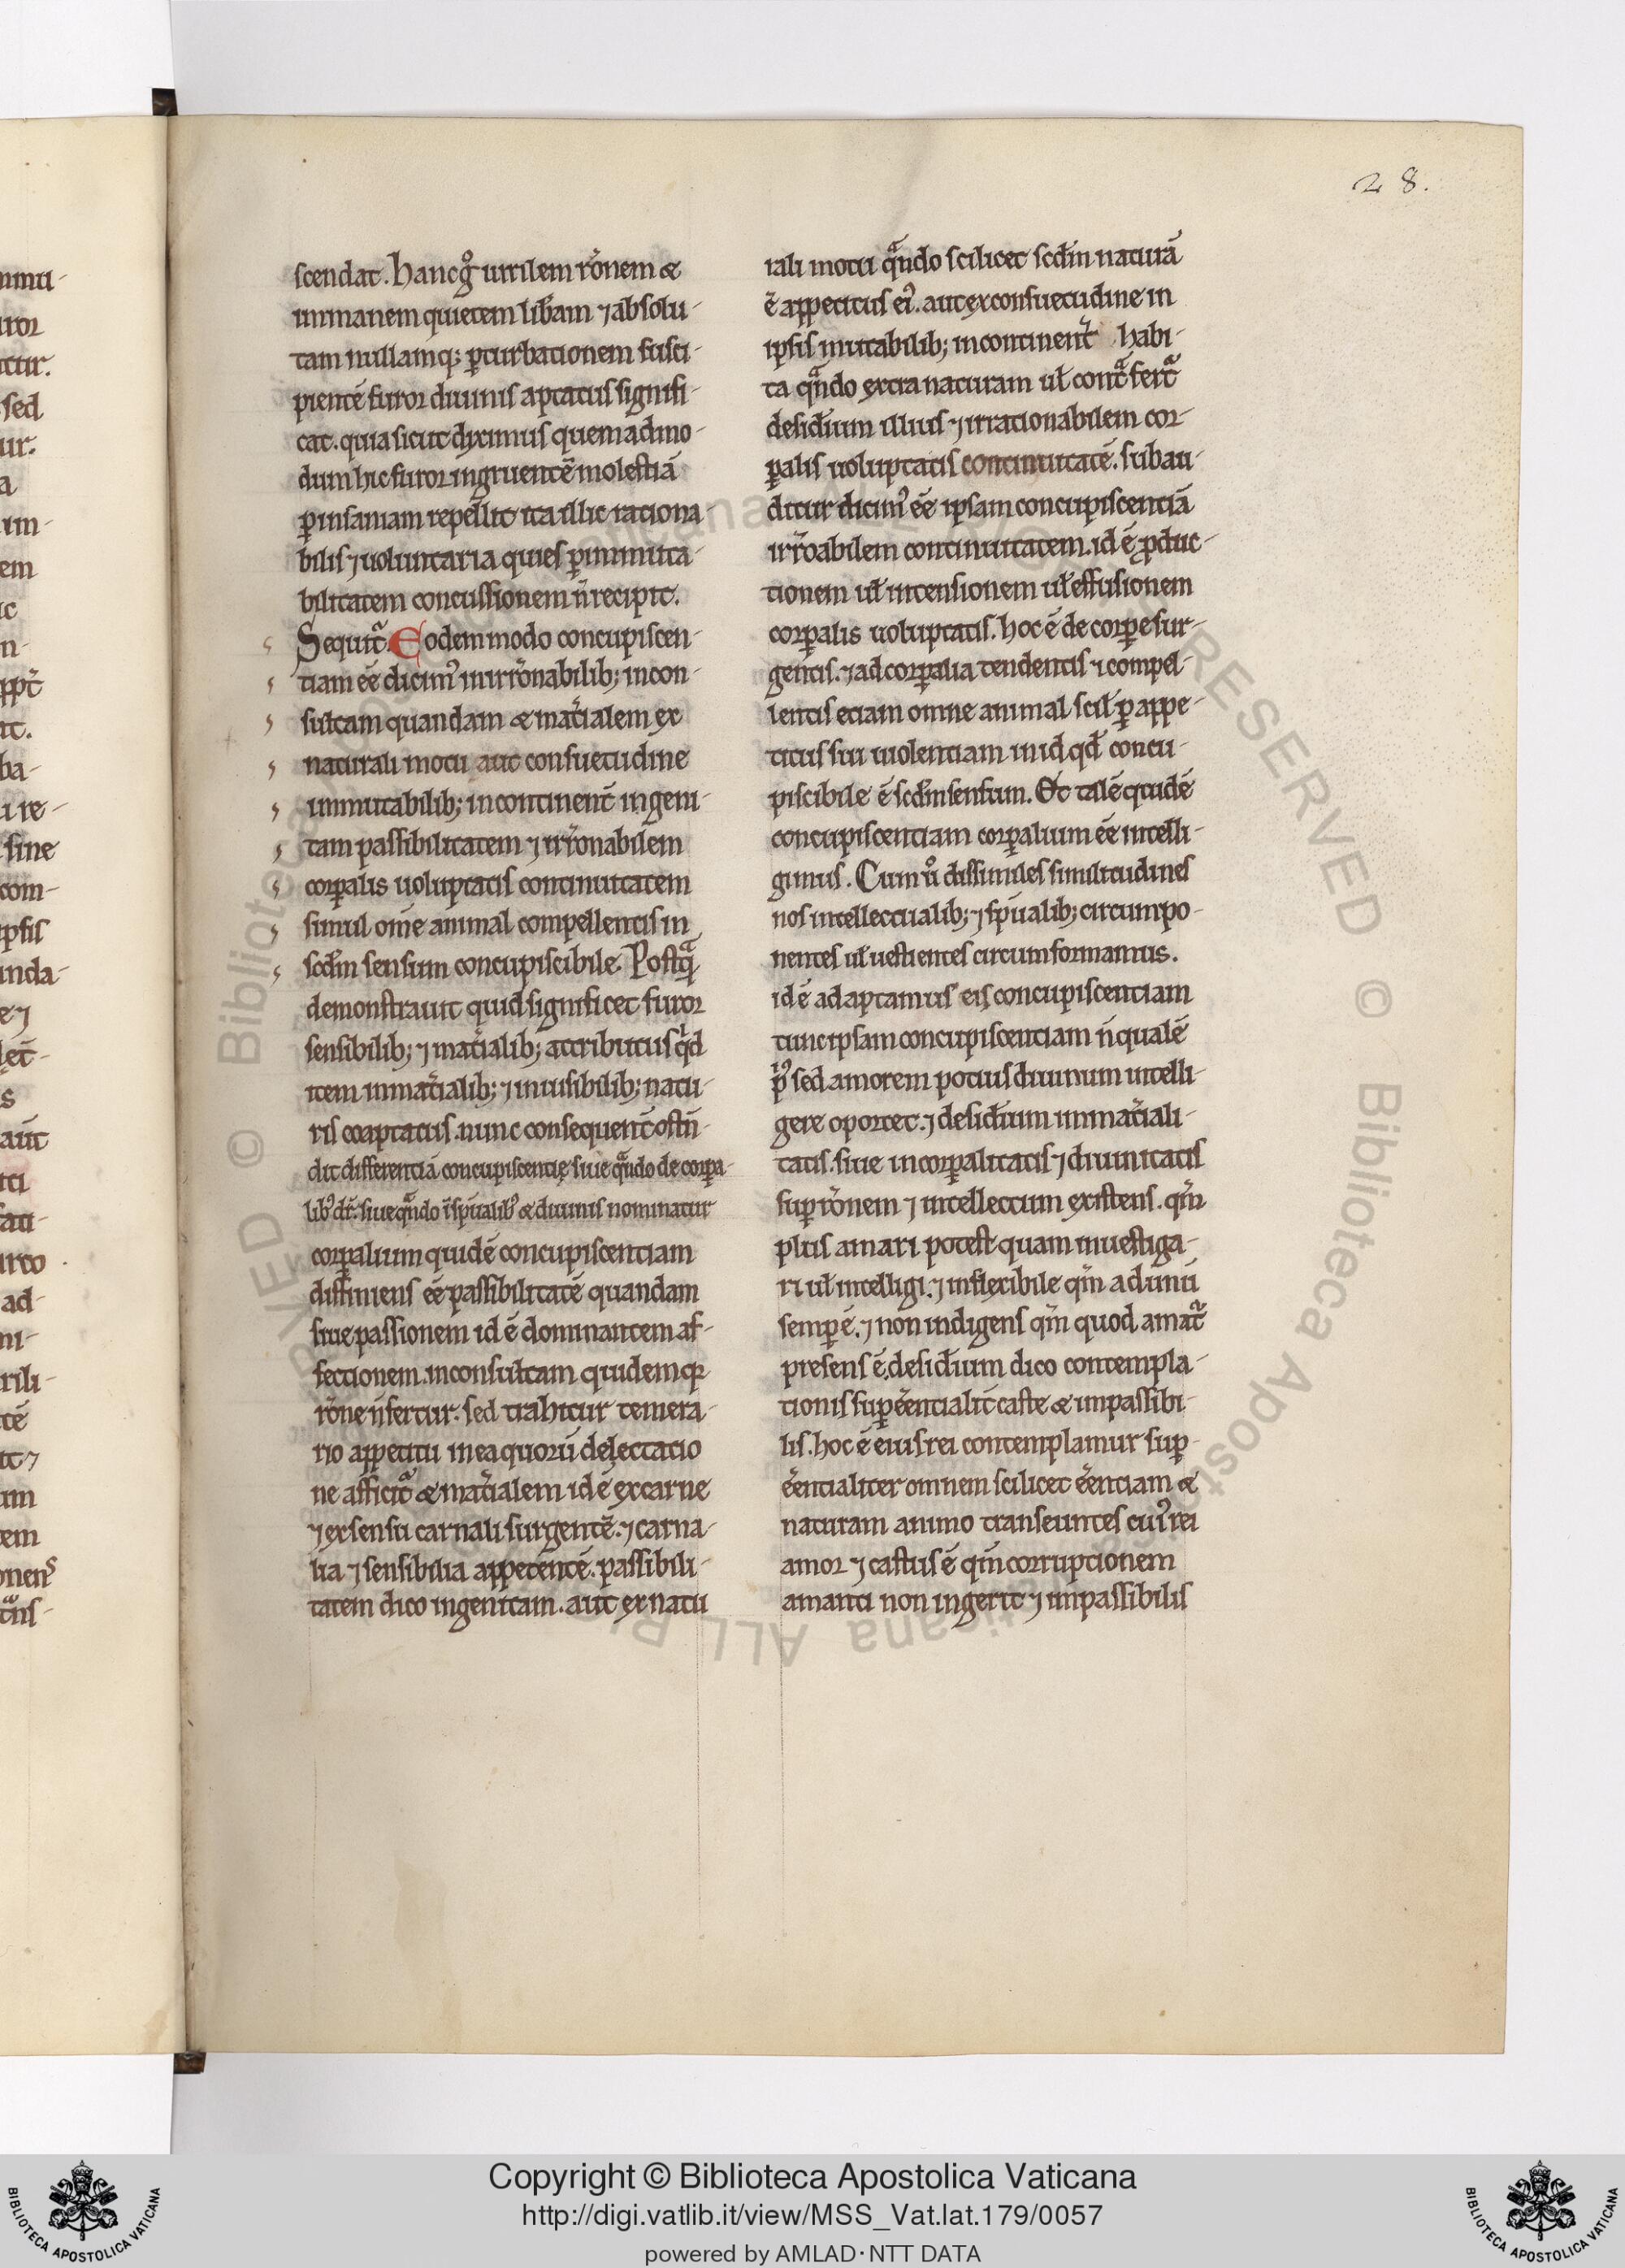 28.
scendat. hanc gͦ uirilem ro̅nem &
immanem quietem lib̅am ⁊ absolu-
tam nullamq; ꝑturbationem susci-
piente̅ furor diuinis aptatus signifi-
cat. quia sicut diximus quemadmo-
dum hic furor ingruente̅ molestia̅
ꝑ insaniam repellit ita illic rationa-
bilis ⁊ uoluntaria quies ꝑ inmuta-
bilitatem concussionem n̅ recipit.
Sequit᷑. Eodem modo concupiscen-
tiam ee̅ dicim᷒ in irro̅nabilib; incon-
sultam quandam & mat̅ialem ex
naturali motu aut consuetudine
inmutabilib; incontinent̅ ingeni-
tam passibilitatem ⁊ irro̅nabilem
corꝑalis uoluptatis continuitatem
simul om̅e animal compellentis in
scd̅m sensum concupiscibile. Postqᷓ
demonstrauit quid significet furor
sensibilib; ⁊ mat̅ialib; attributus qͥd
item inmat̅ialib; ⁊ inuisibilib; natu-
ris coaptatus. nunc consequent̅ oste̅n-
dit differentia̅ concupiscentię siue qᷓndo de corꝑa-
lib᷒ dr̅. siue qᷓndo i̅ sp̅ualib᷒ & diuinis nominatur
corꝑalium quide̅ concupiscentiam
diffiniens ee̅ passibilitate̅ quandam
siue passionem id e̅ dominantem af-
fectionem. inconsultam quidem qꝛ
ro̅ne n̅ fertur. sed trahitur temera-
rio appetitu in ea quoru̅ delectatio
ne afficit᷑ & mat̅ialem id e̅ ex carne
⁊ ex sensu carnali surgente̅. ⁊ carna-
lia ⁊ sensibilia appetente̅. passibili-
tatem dico ingenitam. aut ex natu
rali motu qᷓndo scilicet scd̅m natura̅
e̅ appetitus ei᷒. aut ex consuetudine in
ipsis mutabilib; incontinent̅ habi-
ta qᷓndo extra naturam ul̅ contᷓ fert᷑
desid̅ium illius ⁊ irrationabilem cor-
ꝑalis uoluptatis continuitate̅. subau-
ditur dicim᷒ ee̅ ipsam concupiscentia̅
irro̅abilem continuitatem. id e̅ ꝓduc-
tionem ul̅ intensionem ul̅ effusionem
corꝑalis uoluptatis. hoc e̅ de corꝑe sur-
gentis. ⁊ ad corꝑalia tendentis ⁊ compel-
lentis etiam omne animal scil̅ ꝑ appe-
titus sui uiolentiam in id qd̅ concu-
piscibile e̅ scd̅m sensum. Et tale̅ quide̅
concupiscentiam corꝑalium ee̅ intelli-
gimus. Cum uͦ dissimiles similitudines
nos intellectualib; ⁊ sp̅ualib; circumpo-
nentes ul̅ uestientes circumformamus.
id e̅ adaptamus eis concupiscentiam
tunc ipsam concupiscentiam n̅ quale̅
pͥ᷒ sed amorem potius diuinum intelli-
gere oportet. ⁊ desid̅ium inmat̅iali-
tatis. siue incorꝑalitatis ⁊ diuinitatis
suꝑ ro̅nem ⁊ intellectum existens. qm̅
plus amari potest quam inuestiga-
ri ul̅ intelligi. ⁊ inflexibile qm̅ ad unu̅
semꝑ e̅. ⁊ non indigens qm̅ quod amat᷑
presens e̅. desid̅ium dico contempla-
tionis suꝑ ee̅ntialit̅ caste & impassibi-
lis. hoc e̅ eius rei contemplamur suꝑ-
ee̅ntialiter omnem scilicet ee̅ntiam &
naturam animo transeuntes cui᷒ rei
amor ⁊ castus e̅ qm̅ corruptionem
amanti non ingerit ⁊ impassibilis
Copyright © Biblioteca Apostolica Vaticana
http://digi.vatlib.it/view/MSS_Vat.lat.179/0057
powered by AMLAD·NTT DATA